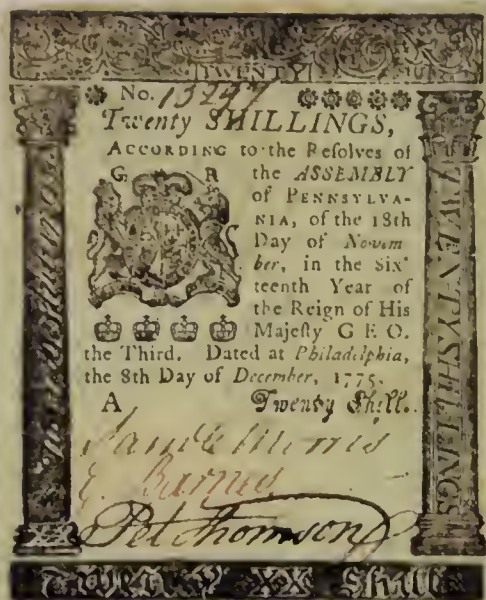 TWENTY
No. 15247
Twenty SHILLINGS,
ACCORDING to the Reſolves of
G R the ASSEMBLY
of PENNSYLVA-
NIA, of the 18th
Day of Novem
ber, in the Six
teenth Year of
the Reign of His
Majeſty GEO.
the Third. Dated at Philadelphia,
the 8th Day of December, 1775.
A Twenty Shill.
Morris
E. Barnes
Pet Thomson
TWENTY SHILLINGS
XX Shill